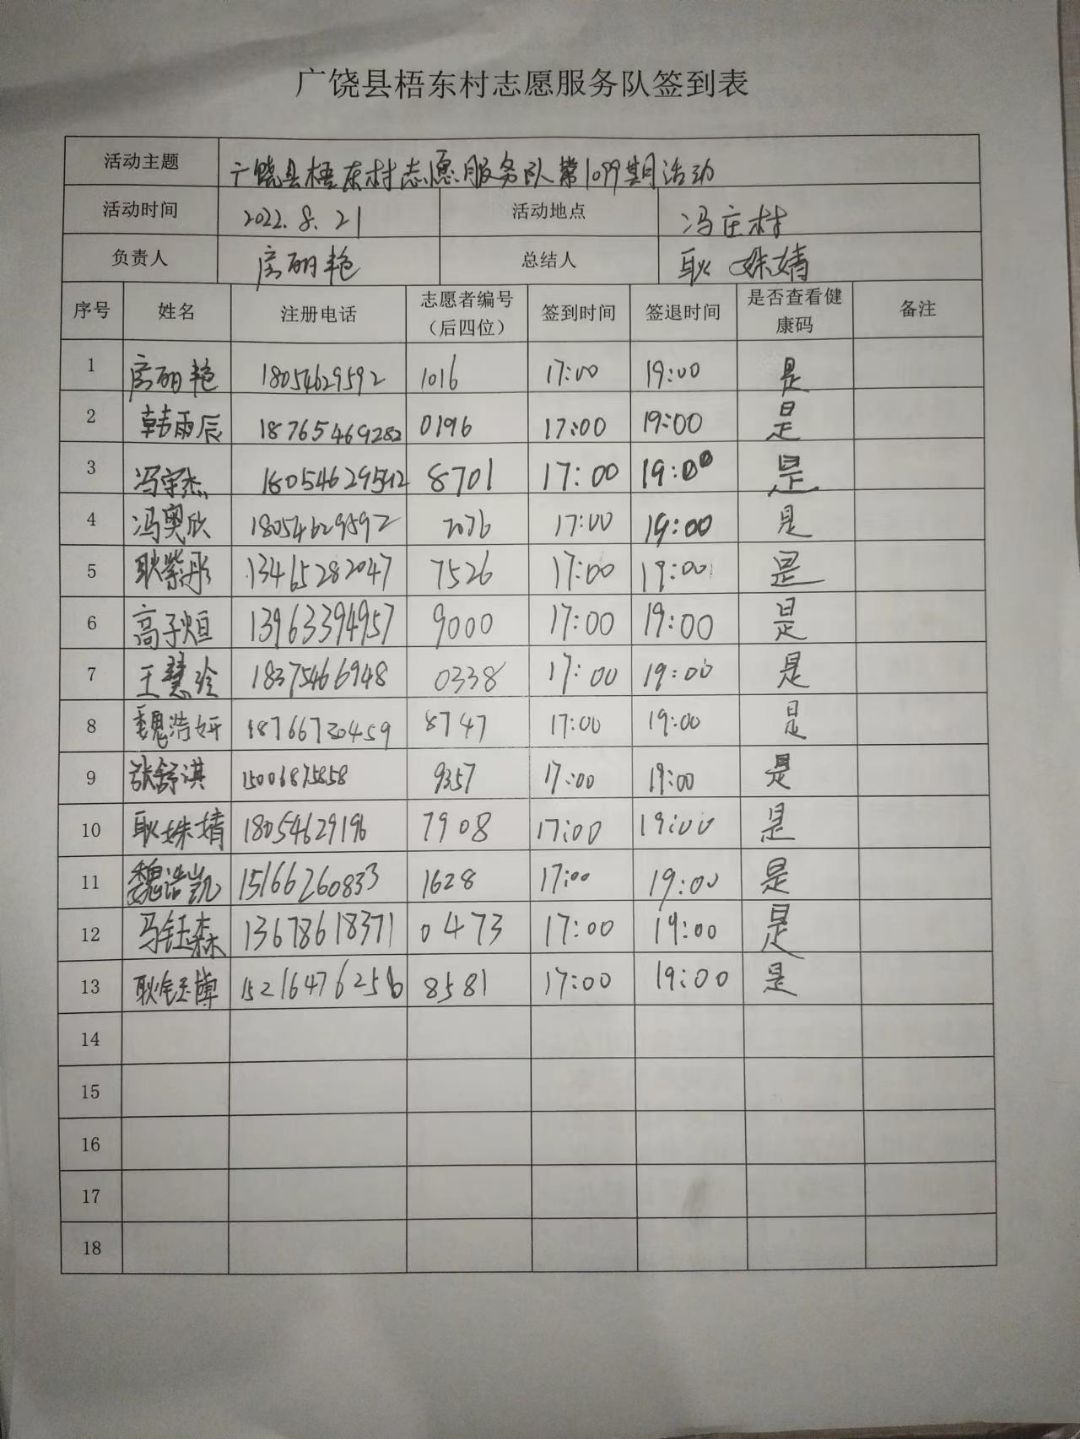 广饶县梧东村志愿服务队签到表
活动主题 广饶县梧东村志愿服务队第1099期活动
活动时间 2022.8.21 活动地点 冯庄村
负责人 房丽艳 总结人 耿姝婧
序号 姓名 注册电话 志愿者编号（后四位） 签到时间 签退时间 是否查看健康码 备注
1 房丽艳 18054629592 1016 17:00 19:00 是
2 韩雨辰 18765469282 0196 17:00 19:00 是
3 冯宇杰 8701 17:00 19:00 是
4 冯奥欣 18054629592 7076 17:00 19:00 是
5 耿紫彤 13465282047 7526 17:00 19:00 是
6 高子烜 13963394957 9000 17:00 19:00 是
7 王慧玲 18375466948 0338 17:00 19:00 是
8 魏浩妍 18766730459 8747 17:00 19:00 是
9 张舒淇 15006875858 9357 17:00 19:00 是
10 耿姝婧 18054629196 7908 17:00 19:00 是
11 魏浩凯 15166260833 1628 17:00 19:00 是
12 马钰森 13678618371 0473 17:00 19:00 是
13 耿钰博 15216476256 8581 17:00 19:00 是
14
15
16
17
18